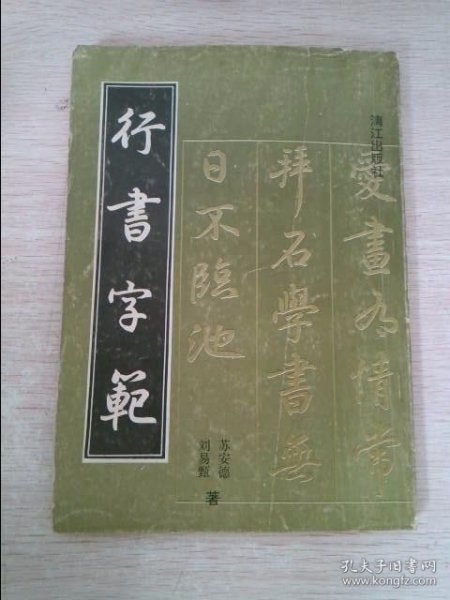 行書字範
漓江出版社
愛畫有情常
拜石學書無
日不臨池
苏安德
刘易甄
著
孔夫子旧书网
www.kongfz.com